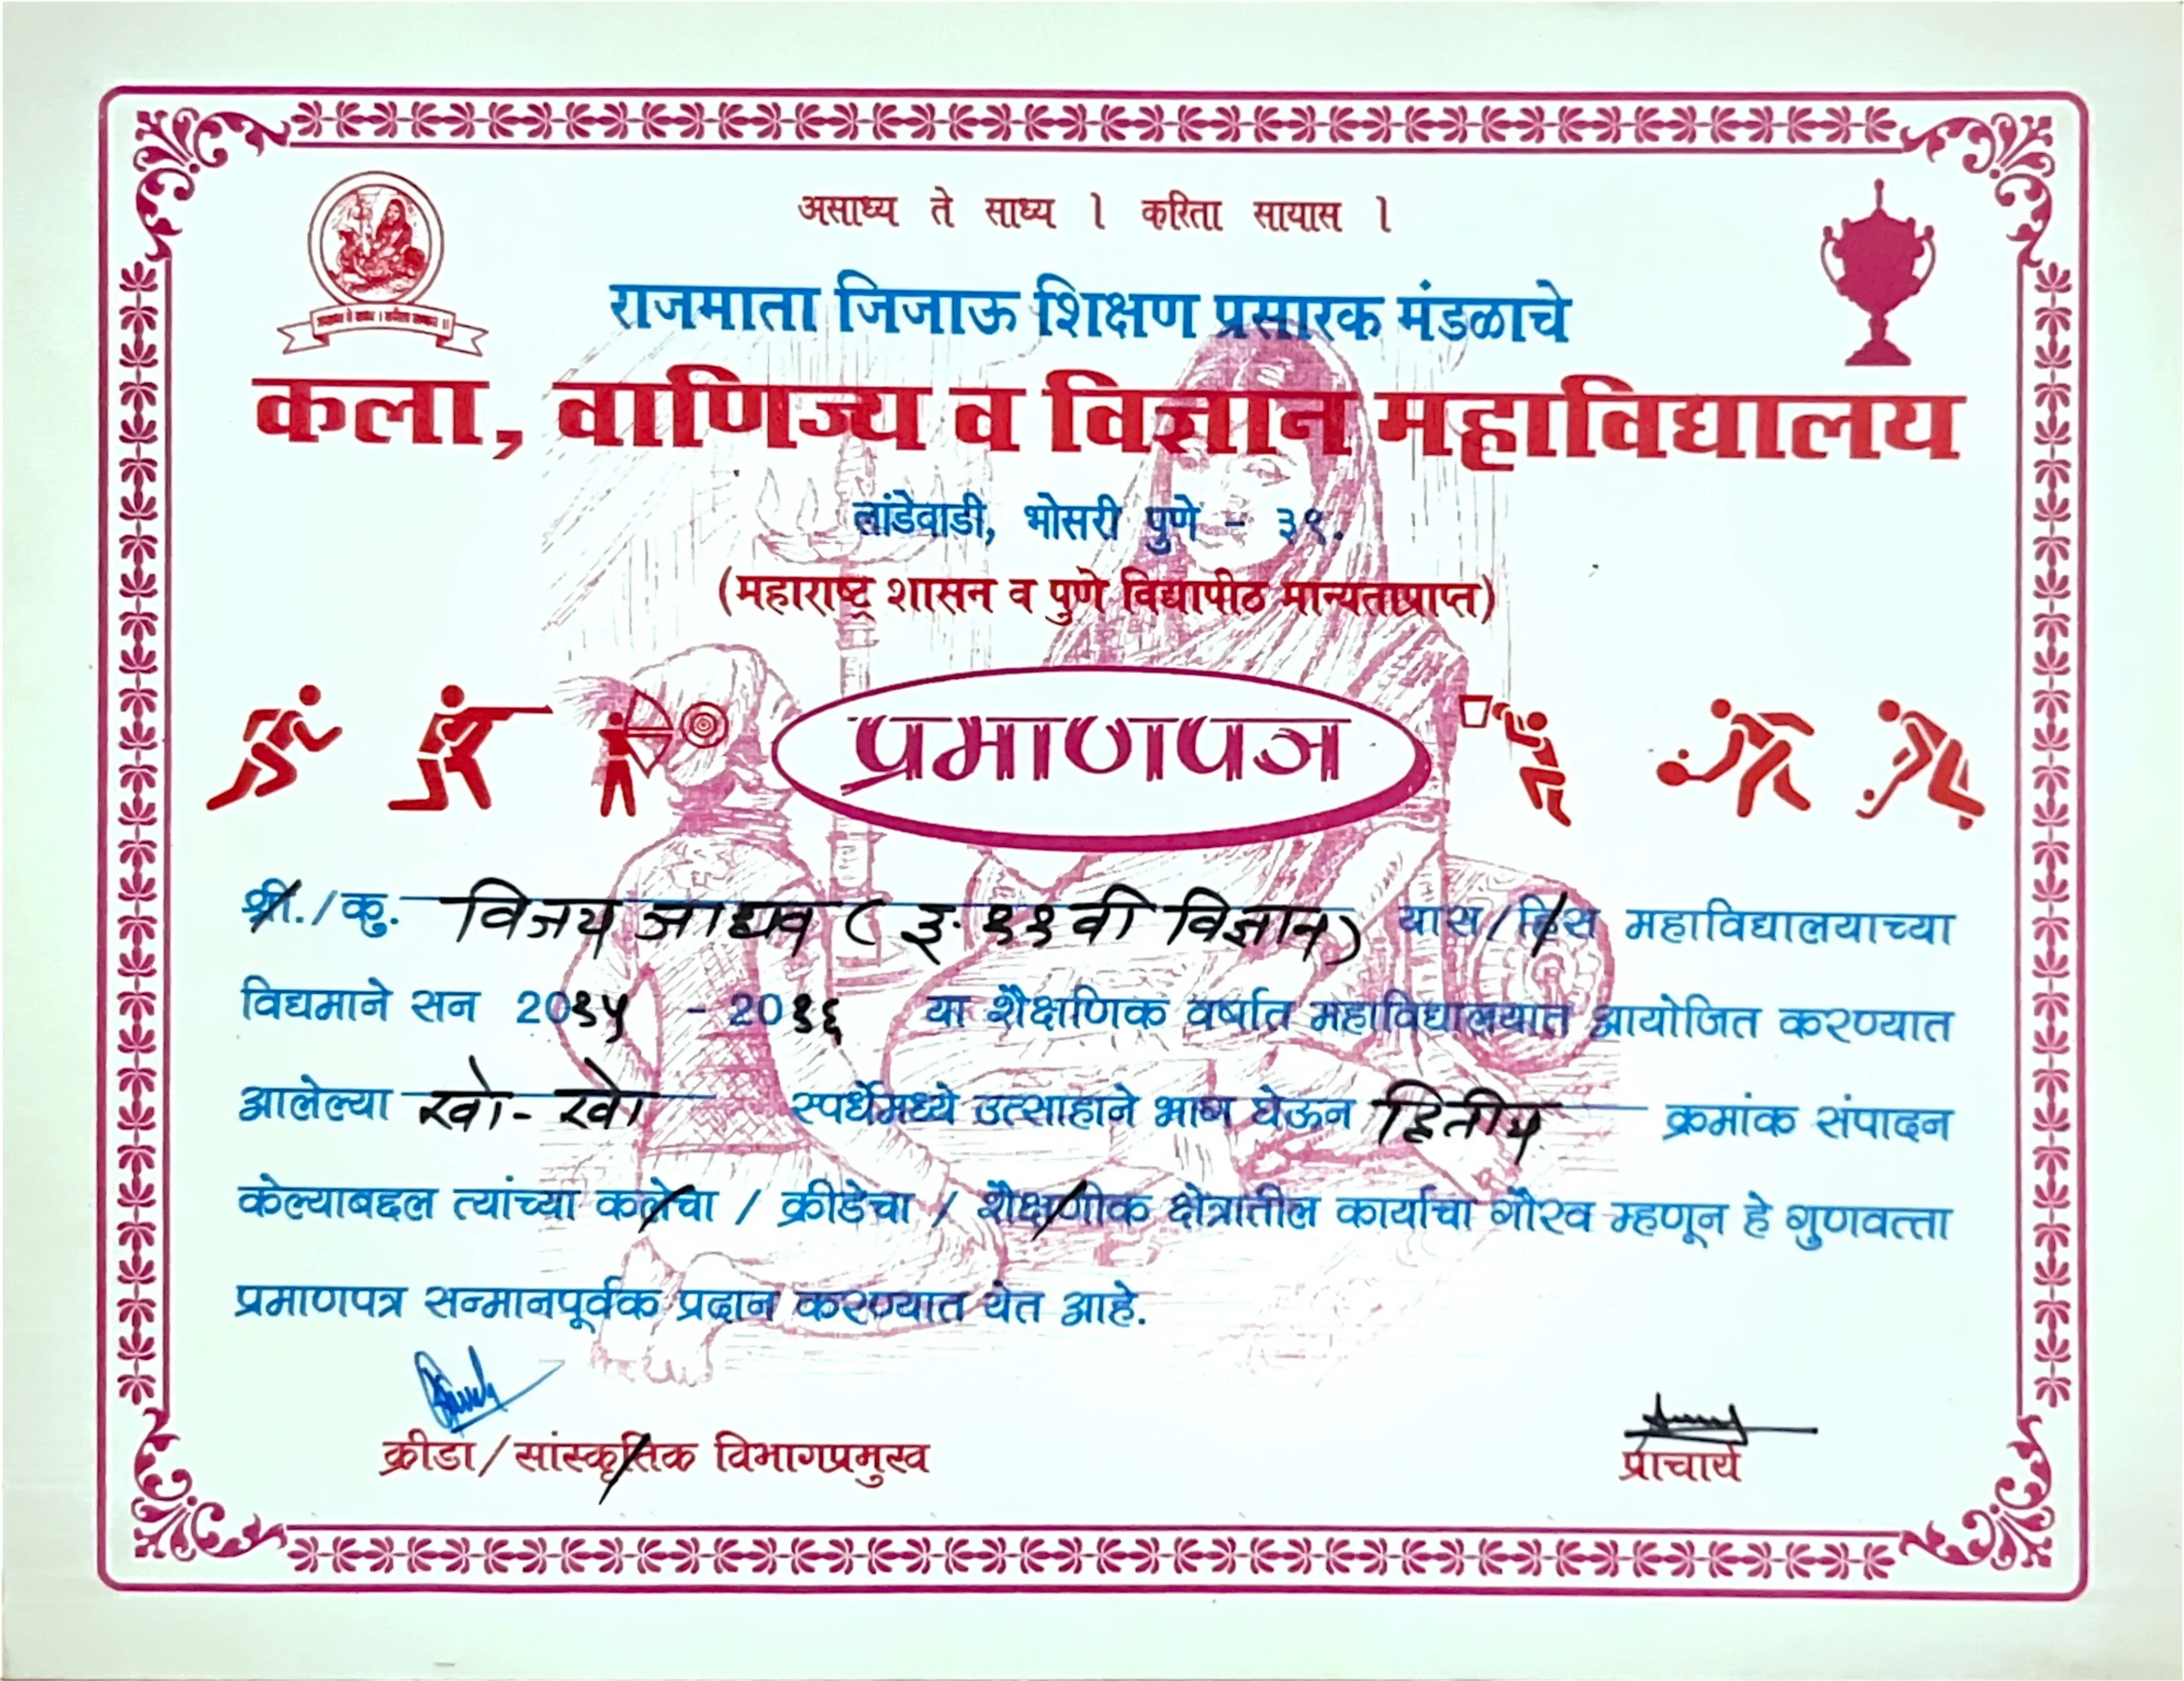 असाध्य ते साध्य । करिता सायास ।
राजमाता जिजाऊ शिक्षण प्रसारक मंडळाचे
कला, वाणिज्य व विज्ञान महाविद्यालय
लांडेवाडी, भोसरी पुणे - ३९.
(महाराष्ट्र शासन व पुणे विद्यापीठ मान्यताप्राप्त)
प्रमाणपत्र
श्री./कु. विजय जाधव (इ. ११वी विज्ञान) यास/हिस महाविद्यालयाच्या
विद्यमाने सन 20१५ - 20१६ या शैक्षणिक वर्षात महाविद्यालयात आयोजित करण्यात
आलेल्या खो-खो स्पर्धेमध्ये उत्साहाने भाग घेऊन द्वितीय क्रमांक संपादन
केल्याबद्दल त्यांच्या कलेचा / क्रीडेचा / शैक्षणीक क्षेत्रातील कार्याचा गौरव म्हणून हे गुणवत्ता
प्रमाणपत्र सन्मानपूर्वक प्रदान करण्यात येत आहे.
क्रीडा/सांस्कृतिक विभागप्रमुख
प्राचार्य